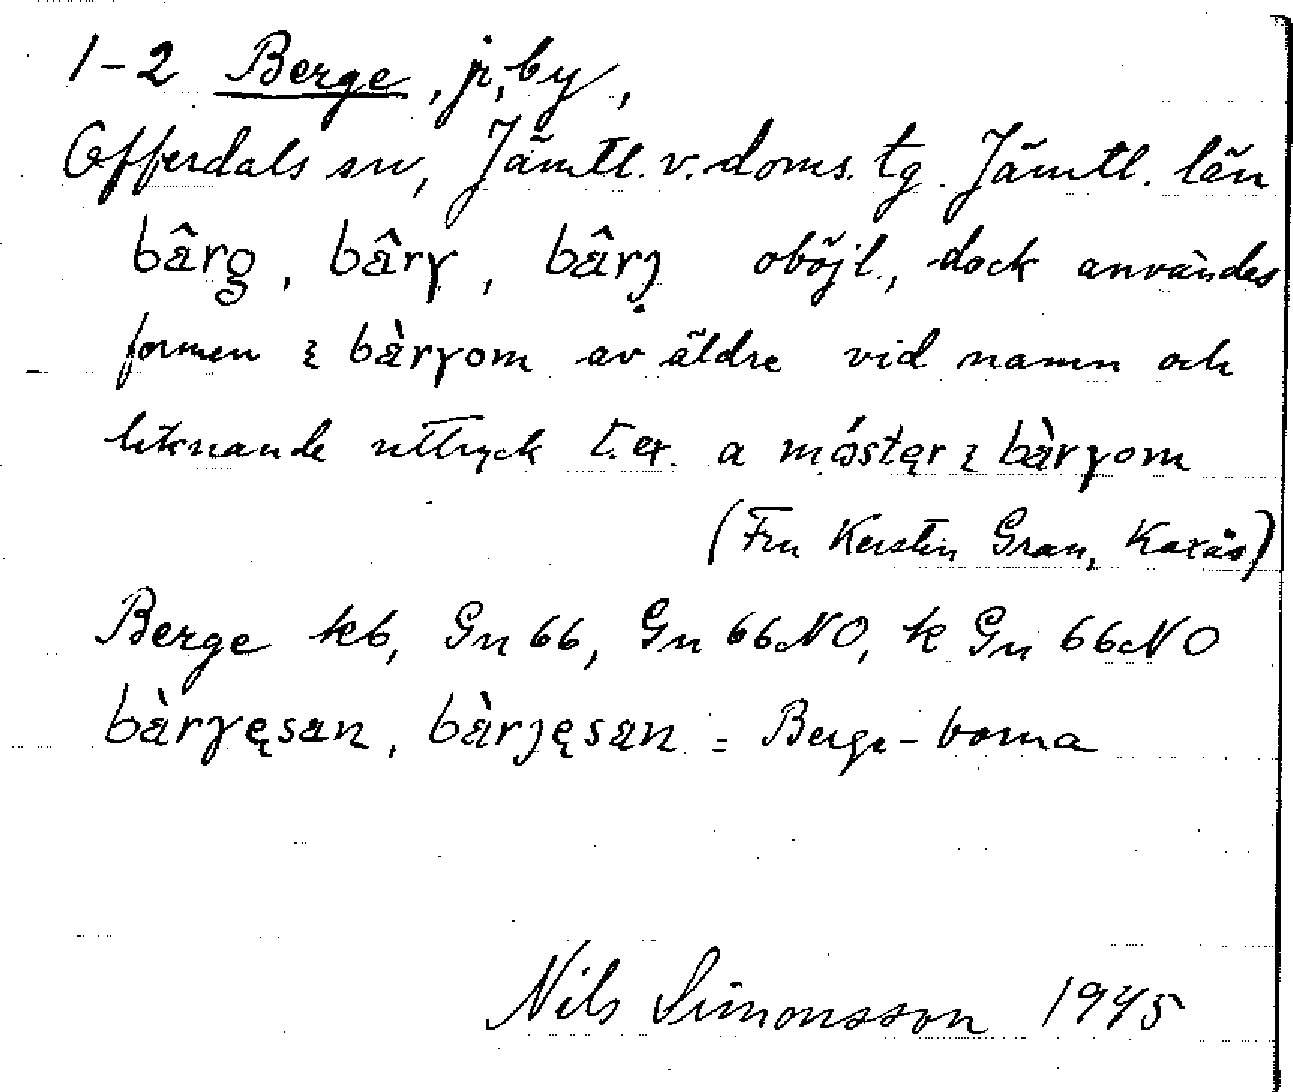 1-2 Berge, ji, by,
Offerdals sn, Jämtl. v. doms. tg. Jämtl. län
bârg, bârγ, bârȷ oböjl., dock användes
formen ı bàrγom av äldre vid namn och
liknande uttryck t.ex. a móster ı bàrγom
(Fru Kerstin Gran, Kaxås)
Berge kb, Gn 66, Gn 66 NO, k Gn 66 NO
bàrγęsan, bàrȷęsan = Berge-borna
Nils Simonsson 1945